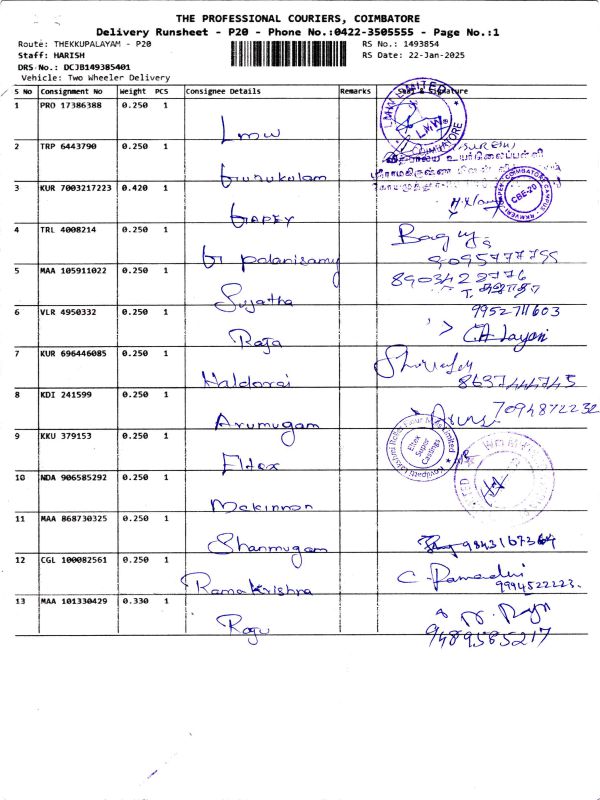 THE PROFESSIONAL COURIERS, COIMBATORE
Delivery Runsheet - P20 - Phone No.:0422-3505555 - Page No.:1
Route: THEKKUPALAYAM - P20 RS No.: 1493854
Staff: HARISH RS Date: 22-Jan-2025
DRS No.: DCJB149385401
Vehicle: Two Wheeler Delivery
S No Consignment No Weight PCS Consignee Details Remarks Seal & Signature
1 PRO 17386388 0.250 1 Lmw LMW LIMITED LMW COIMBATORE
2 TRP 6443790 0.250 1 Gurukulam
3 KUR 7003217223 0.420 1 GAPEY CBE-20
4 TRL 4008214 0.250 1 G palanisamy 9095777795
5 MAA 105911022 0.250 1 Sujatha 8903428776
6 VLR 4950332 0.250 1 Raja 9952711603
7 KUR 696446085 0.250 1 Haldorai 8637444745
8 KDI 241599 0.250 1 Arumugam 7094872232
9 KKU 379153 0.250 1 Eltex Eltex Super Castings
10 NDA 906585292 0.250 1 Makinnon
11 MAA 868730325 0.250 1 Shanmugam 9843167364
12 CGL 100082561 0.250 1 Ramakrishna 9994522223.
13 MAA 101330429 0.330 1 Ragu 9489585217